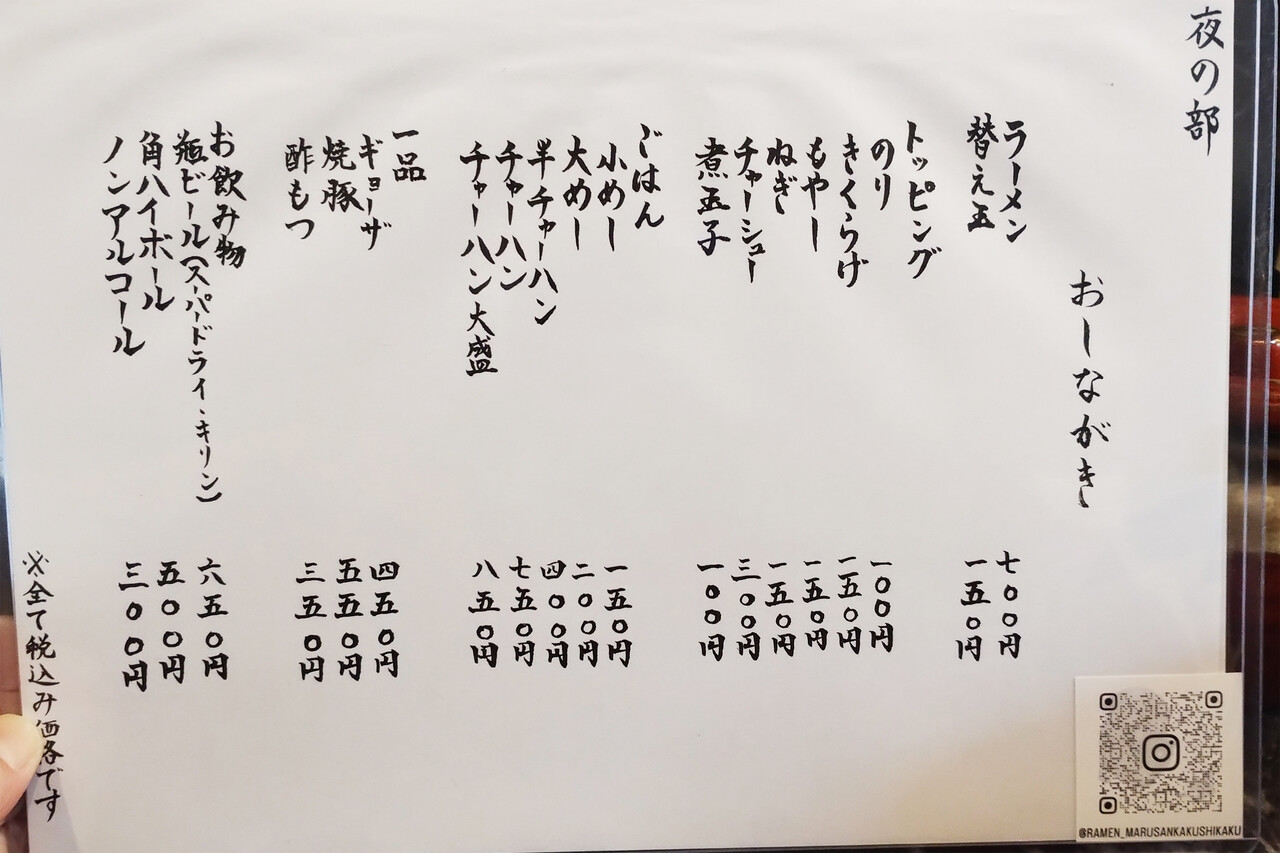 夜の部
おしながき
ラーメン 七〇〇円
替え玉 一五〇円
トッピング
のり 一〇〇円
きくらげ 一五〇円
もやし 一五〇円
ねぎ 一五〇円
チャーシュー 三〇〇円
煮玉子 一〇〇円
ごはん
小めし 一五〇円
大めし 二〇〇円
半チャーハン 四〇〇円
チャーハン 七五〇円
チャーハン大盛 八五〇円
一品
ギョーザ 四五〇円
焼豚 五五〇円
酢もつ 三五〇円
お飲み物
瓶ビール(スーパードライ・キリン) 六五〇円
角ハイボール 五〇〇円
ノンアルコール 三〇〇円
※全て税込み価格です
@RAMEN_MARUSANKAKUSHIKAKU